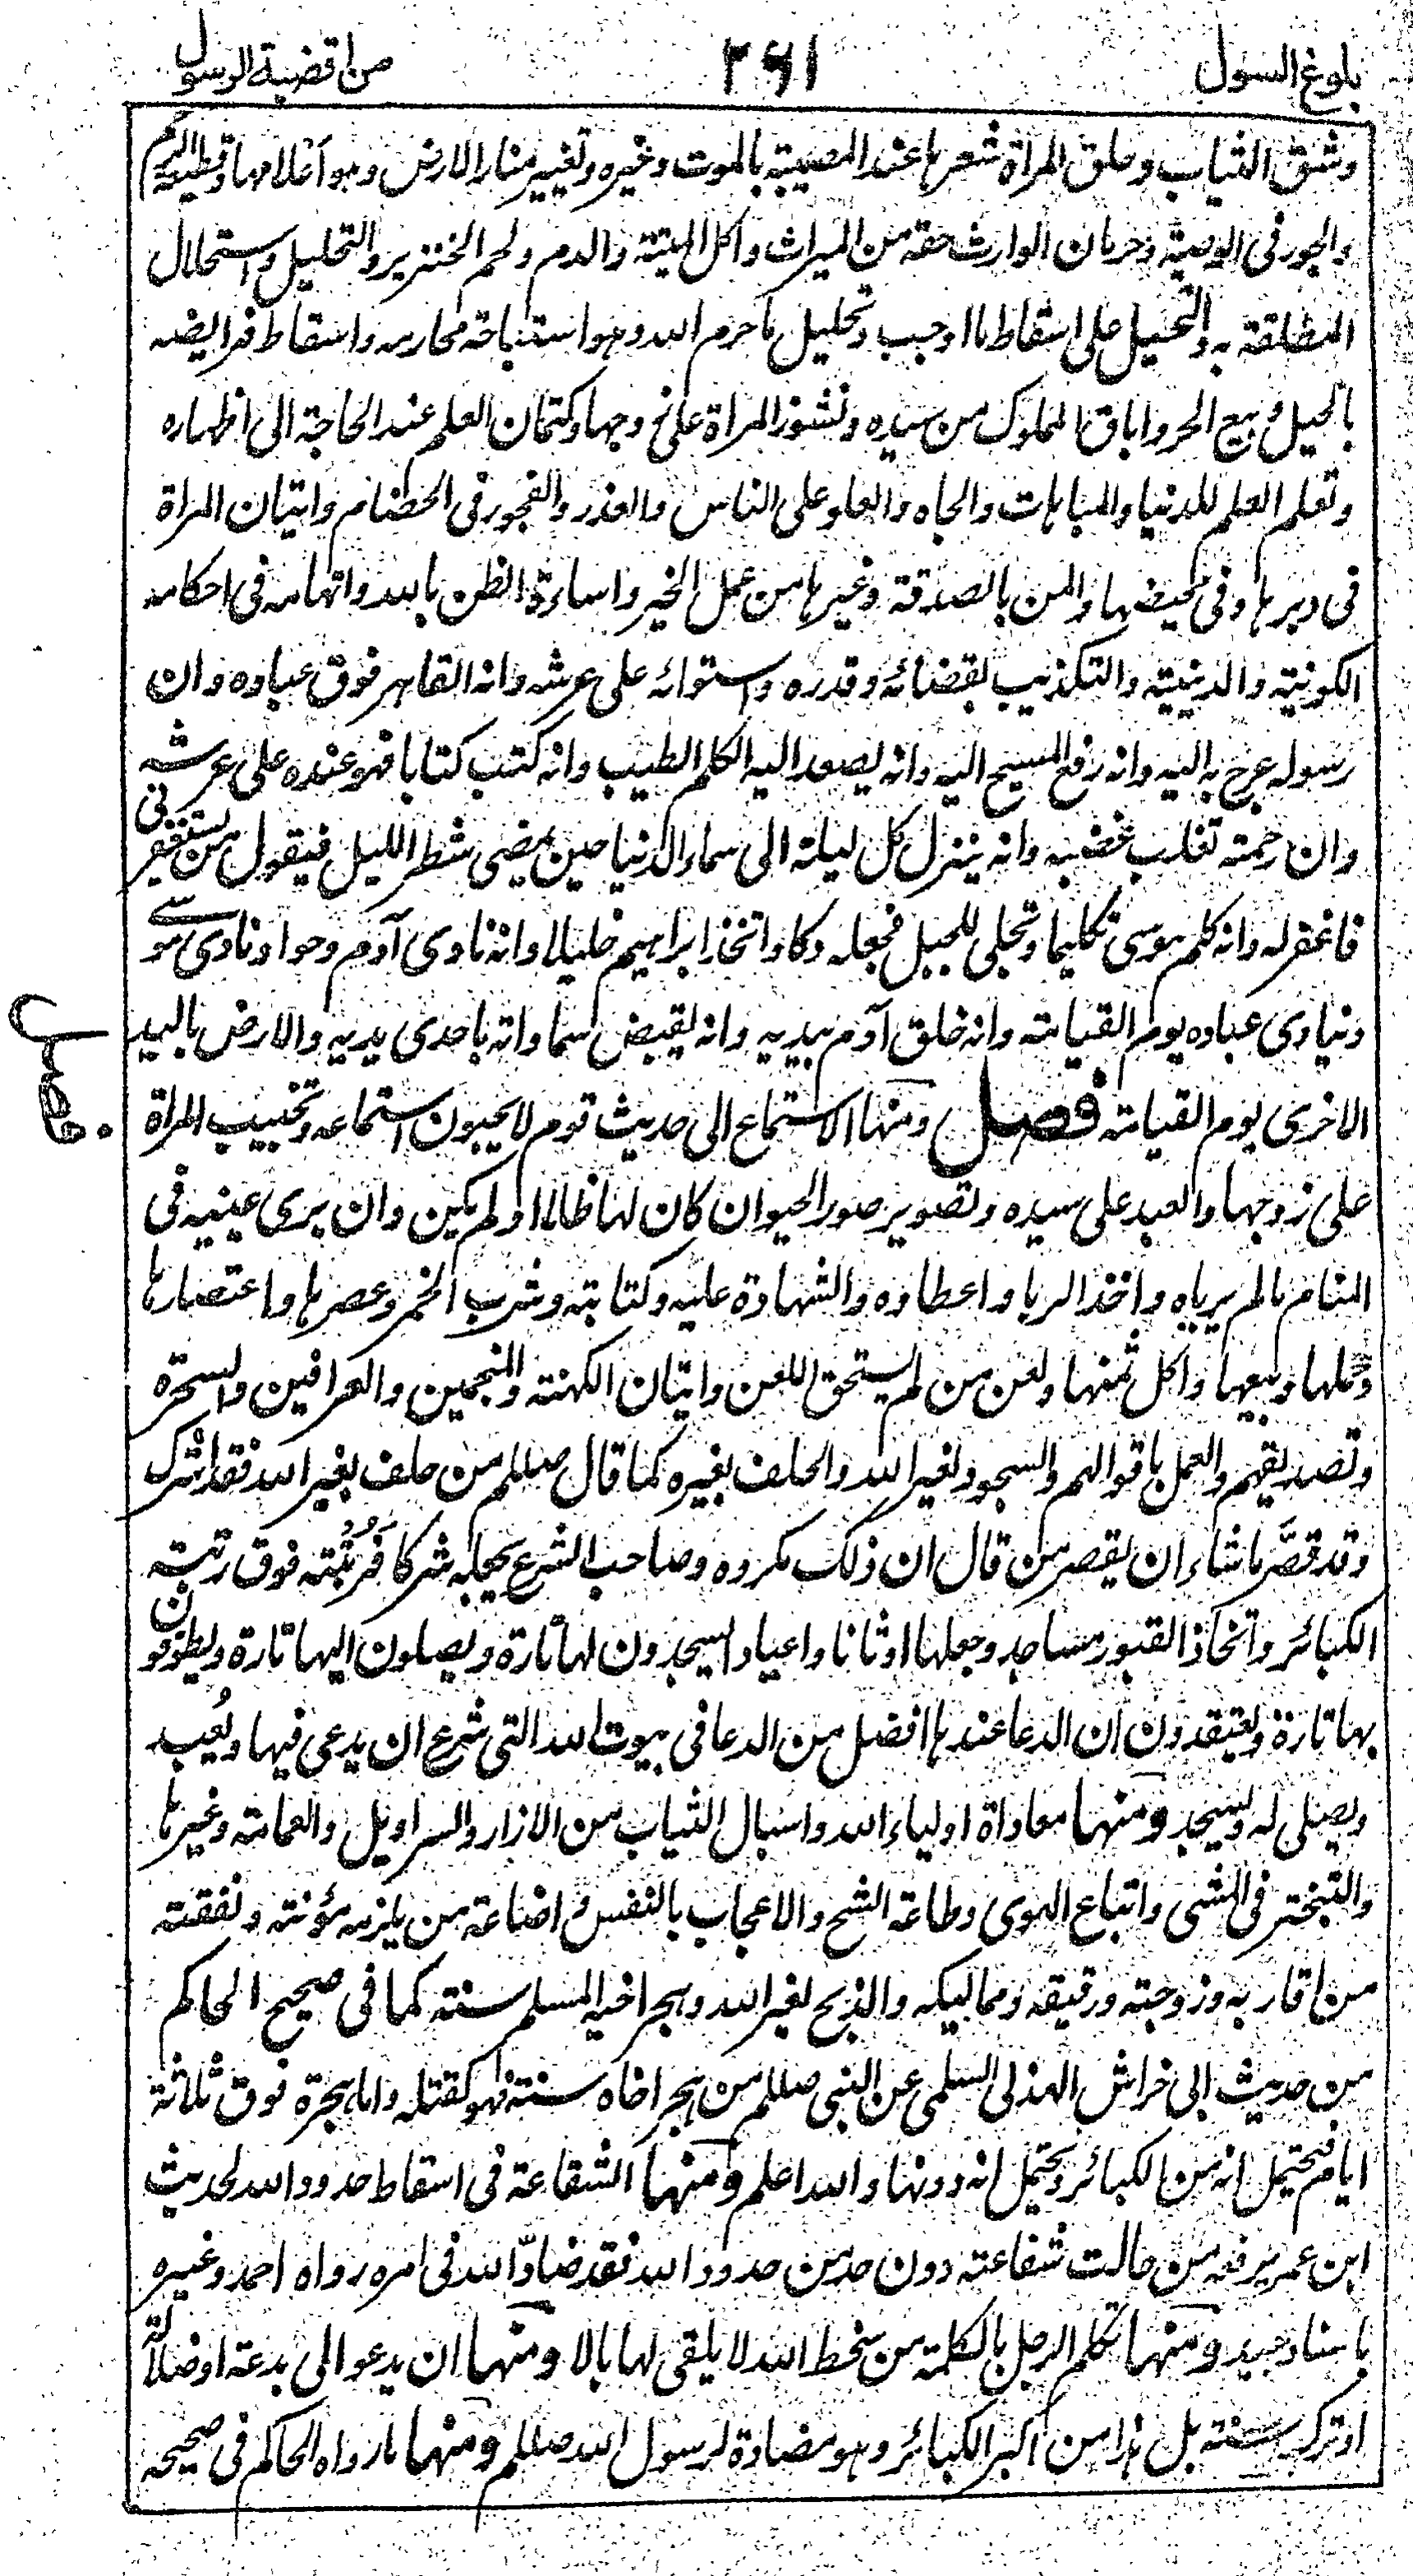 بلوغ السول ٢٦١ من اقضية الرسول
وشق الثياب وحلق المراة شعرها عند المصيبة بالموت وغيره وتغيير منار الارض وهو اعلامها وقطيعة الرحم
والجور فى الوصية وحرمان الوارث حقه من الميراث واكل الميتة والدم ولحم الخنزير والتحليل واستحلال
المطلقة به والتحيل على اسقاط ما اوجب وتحليل ما حرم الله وهو استباحة محارمه واسقاط فرايضه
بالحيل وبيع الحر واباق المملوك من سيده ونشوز المراة على زوجها وكتمان العلم عند الحاجة الى اظهاره
وتعلم العلم للدنيا والمباهات والجاه والعلو على الناس والغدر والفجور فى الخصام واتيان المراة
فى دبرها وفى محيضها والمن بالصدقة وغيرها من عمل الخير واساءة الظن بالله واتهامه فى احكامه
الكونية والدينية والتكذيب بقضائه وقدره واستوائه على عرشه وانه القاهر فوق عباده وان
رسوله عرج به اليه وانه رفع المسيح اليه وانه يصعد اليه الكلم الطيب وانه كتب كتابا فهو عنده على عرشه
وان رحمته تغلب غضبه وانه ينزل كل ليلة الى سماء الدنيا حين يمضى شطر الليل فيقول من يستغفرنى
فاغفر له وانه كلم موسى تكليما وتجلى للجبل فجعله دكا واتخذ ابراهيم خليلا وانه نادى آدم وحوا ونادى موسى
وينادى عباده يوم القيامة وانه خلق آدم بيديه وانه يقبض سماواته باحدى يديه والارض باليد
الاخرى يوم القيامة فصل ومنها الاستماع الى حديث قوم لا يحبون استماعه وتخبيب المراة
فصل
على زوجها والعبد على سيده وتصوير صور الحيوان كان لها ظل او لم يكن وان يرى عينيه فى
المنام ما لم يرياه واخذ الربا واعطاؤه والشهادة عليه وكتابته وشرب الخمر وعصرها واعتصارها
وحملها وبيعها واكل ثمنها ولعن من لم يستحق اللعن واتيان الكهنة والمنجمين والعرافين والسحرة
وتصديقهم والعمل باقوالهم والسجود لغير الله والحلف بغيره كما قال صللم من حلف بغير الله فقد اشرك
وقد قصَّر ما شاء ان يقصر من قال ان ذلك مكروه وصاحب الشرع يجعله شركا فَرُتْبَته فوق رتبة
الكبائر واتخاذ القبور مساجد وجعلها اوثانا واعيادا يسجدون لها تارة ويصلون اليها تارة ويطوفون
بها تارة ويعتقدون ان الدعا عندها افضل من الدعا فى بيوت الله التى شرع ان يدعى فيها ويُعبد
ويصلى له ويسجد ومنها معاداة اولياء الله واسبال الثياب من الازار والسراويل والعمامة وغيرها
والتبختر فى المشى واتباع الهوى وطاعة الشح والاعجاب بالنفس واضاعة من يلزمه مؤنته ونفقته
من اقاربه وزوجته ورقيقه ومماليكه والذبح لغير الله وهجر اخيه المسلم سنة كما فى صحيح الحاكم
من حديث ابى خراش الهذلى السلمى عن النبى صللم من هجر اخاه سنة فهو كقتله واما هجرة فوق ثلاثة
ايام فيحتمل انه من الكبائر ويحتمل انه دونها والله اعلم ومنها الشفاعة فى اسقاط حدود الله لحديث
ابن عمر يرفعه من حالت شفاعته دون حد من حدود الله فقد ضادّ الله فى امره رواه احمد وغيره
باسناد جيد ومنها تكلم الرجل بالكلمة من سخط الله لا يلقى لها بالا ومنها ان يدعو الى بدعة او ضلالة
او ترك سنة بل هذا من اكبر الكبائر وهو مضادة لرسول الله صللم ومنها ما رواه الحاكم فى صحيحه